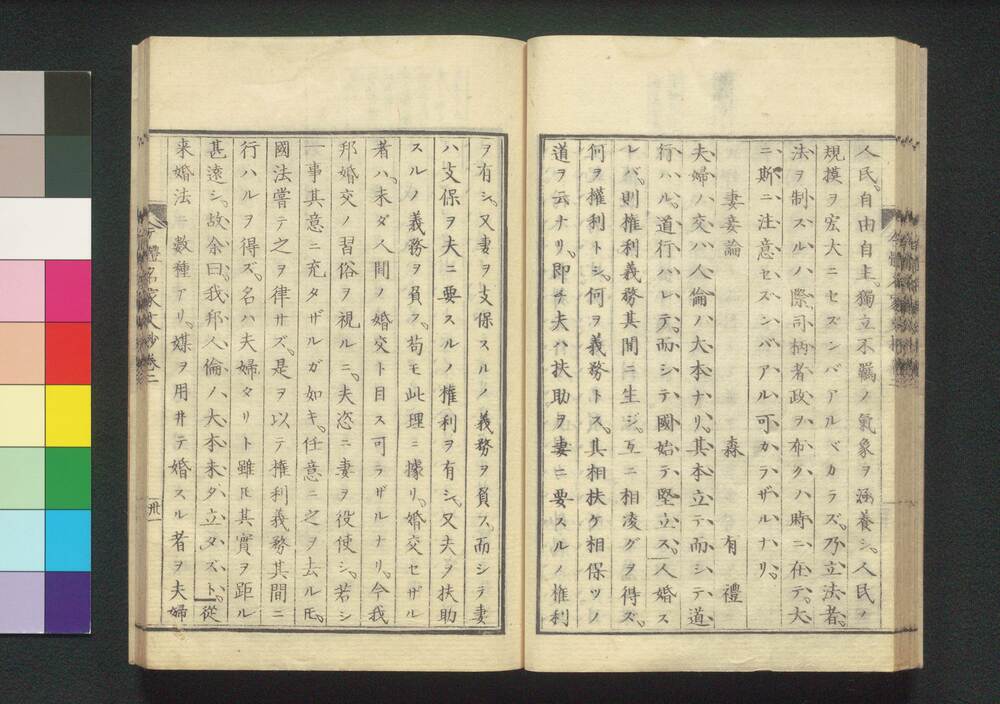 人民。自由自主。獨立不羈ノ氣象ヲ涵養シ。人民ノ
規摸ヲ宏大ニセズンバアルベカラズ。乃立法者。
法ヲ制スルハ際。司柄者政ヲ布クハ時ニ在テ。大
ニ斯ニ注意セズンバアル可カラザルナリ。
妻妾論 森有禮
夫婦ノ交ハ人倫ノ大本ナリ。其本立テ而シテ道
行ハル。道行ハレテ。而シテ國始テ堅立ス。人婚ス
レバ。則權利義務其間ニ生ジ。互ニ相凌グヲ得ズ。
何ヲ權利トシ。何ヲ義務トス。其相扶ケ相保ツノ
道ヲ云ナリ。即チ夫ハ扶助ヲ妻ニ要スルノ權利
ヲ有シ。又妻ヲ支保スルノ義務ヲ負フ。而シテ妻
ハ支保ヲ夫ニ要スルノ權利ヲ有シ。又夫ヲ扶助
スルノ義務ヲ負フ。苟モ此理ニ據リ。婚交セザル
者ハ。未ダ人間ノ婚交ト目ス可ラザルナリ。今我
邦婚交ノ習俗ヲ視ルニ。夫恣ニ妻ヲ役使シ。若シ
一事其意ニ充タザルガ如キ。任意ニ之ヲ去ル𪜈。
國法嘗テ之ヲ律サズ。是ヲ以テ權利義務其間ニ
行ハルヲ得ズ。名ハ夫婦タリト雖𪜈其實ヲ距ル
甚遠シ。故余曰。我邦人倫ノ大本未ダ立タズト。從
来婚法ニ數種アリ。媒ヲ用井テ婚スル者ヲ夫婦
今體名家文抄卷二
卅一